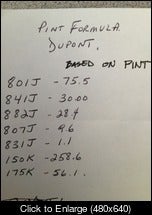 PINT FORMULA
DUPONT.
BASED ON PINT
801J - 75.5
841J - 30.00
882J - 28.4
807J - 9.6
831J - 1.1
150K - 258.6
175K - 56.1.
Click to Enlarge (480x640)